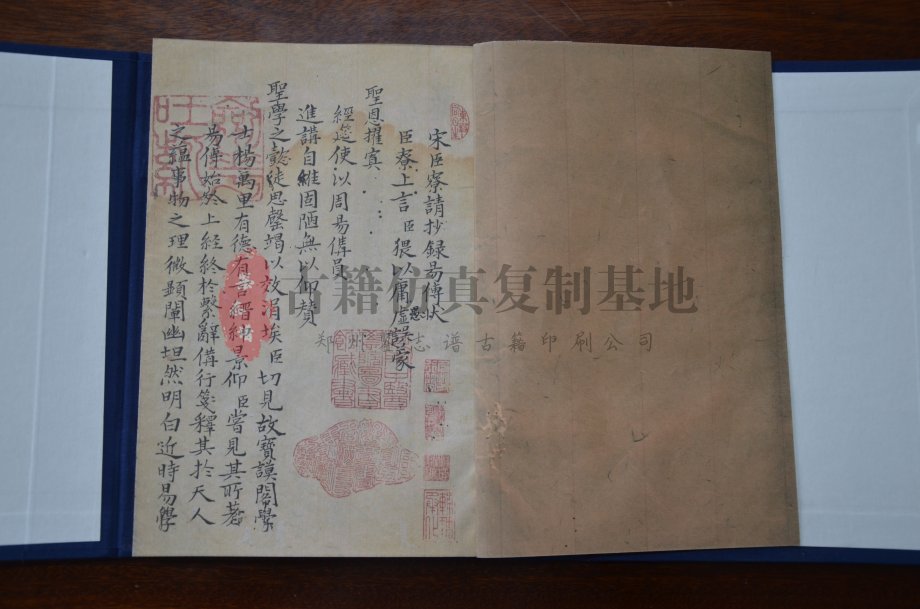 宋臣寮請抄錄易傳狀
臣寮上言臣猥以庸虛愚誤蒙
聖恩擢寘
經筵使以周易備員
進講自維固陋無以仰贊
聖學之懿徒思罄竭以效涓埃臣切見故寶謨閣學
士楊萬里有德有言縉紳景仰臣嘗見其所著
易傳始於上經終於繫辭備行箋釋其於天人
之蘊事物之理微顯闡幽坦然明白近時易學
古籍仿真复制基地
志谱古籍印刷公司